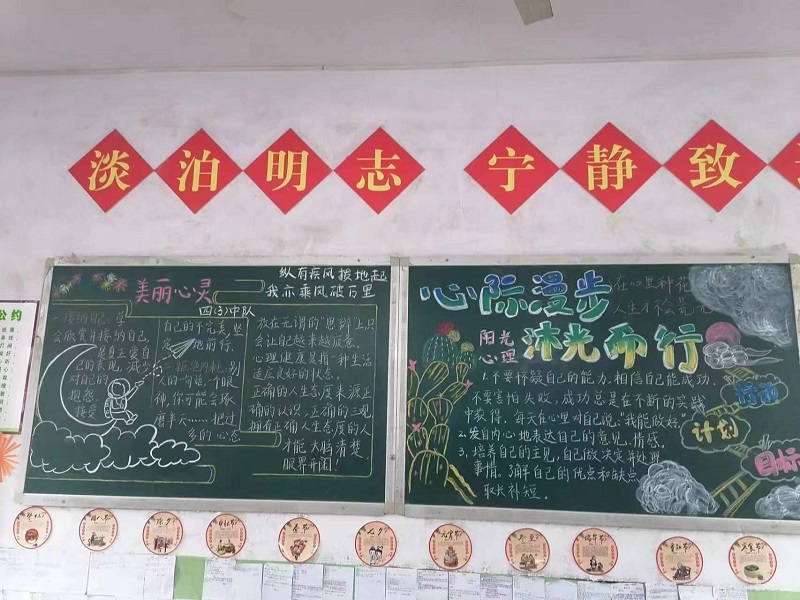 淡泊明志 宁静致
公约
美丽心灵
纵有疾风拔地起
我亦乘风破万里
四(3)中队
接纳自己,学
会欣赏并接纳自己,
是自立爱自
己的表现,减少
对自己的
抱怨,
接受
自己的不完美,坚
定地前行,
拒绝内耗,别
人的一句话,一个眼
神,你可能会琢
磨半天……把过
多的心态
放在无谓的“思辨”上,只
会让自己越来越疲惫。
心理健康是指一种生活
适应良好的状态。
正确的人生态度来源正
确的认识。正确的三观
拥有正确人生态度的人
才能大脑清楚
眼界开阔!
心际漫步
在心里种花
人生才不会荒芜
阳光
心理
沐光而行
1.不要怀疑自己的能力,相信自己能成功。
不要害怕失败,成功总是在不断的实践
中获得,每天在心里对自己说:“我能做好。”
2.发自内心地表达自己的意见,情感。
3.培养自己的主见,自己做决定并处理
事情。了解自己的优点和缺点
取长补短。
行动
计划
目标
腊八节
除夕
春节
七夕
元宵节
端午节
重阳节